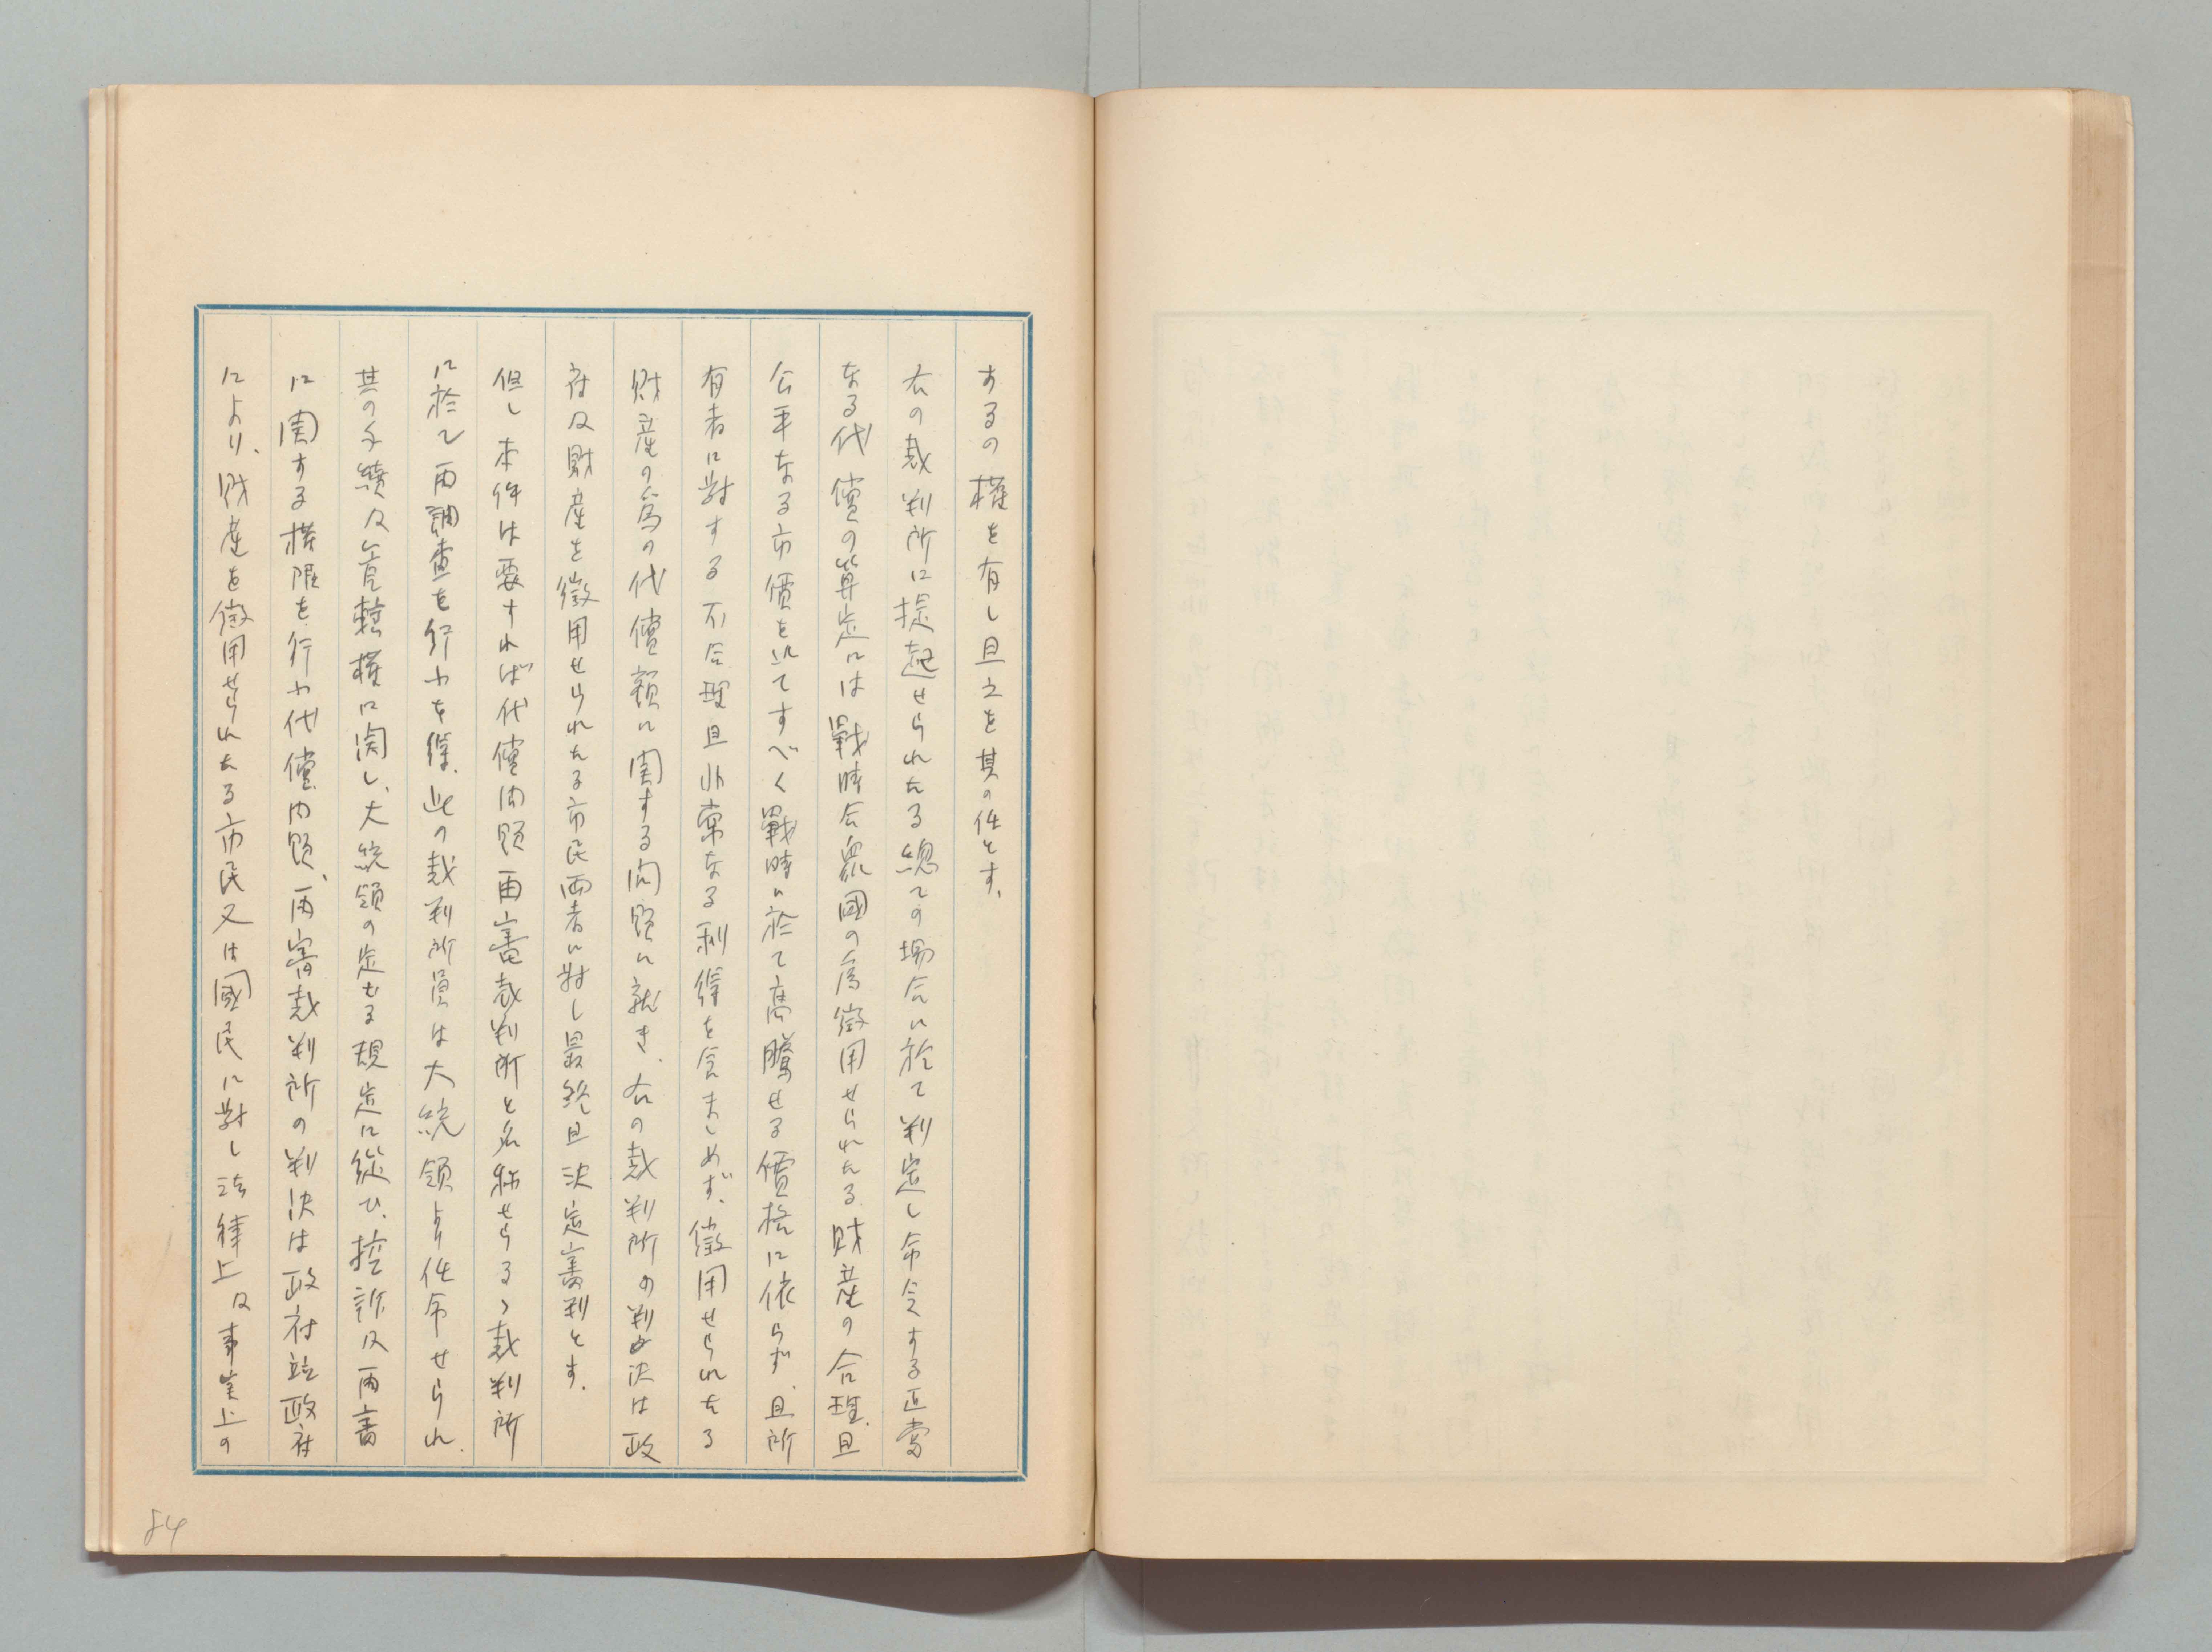 するの權を有し且之を其の任とす、
右の裁判所に提起せられたる總ての場合に於て判定し命令する正當
なる代償の算定には戰時合衆國の爲徴用せられたる財産の合理且
公平なる市價を以てすべく戰時に於て高騰せる價格に依らず、且所
有者に對する不合理且非常なる利得を含ましめず、徴用せられたる
財産の爲の代償額に関する問題に就き、右の裁判所の判決は政
府及財産を徴用せられたる市民両者に對し最終且決定審判とす、
但し本件は要すれば代償問題再審裁判所と名稱せらるゝ裁判所
に於て再調査を行ふを得、此の裁判所員は大統領より任命せられ、
其の手續及管轄權に関し、大統領の定むる規定に從ひ、控訴及再審
に関する權限を行ふ代償問題、再審裁判所の判決は政府並政府
により、財産を徴用せられたる市民又は國民に對し法律上及事実上の
84